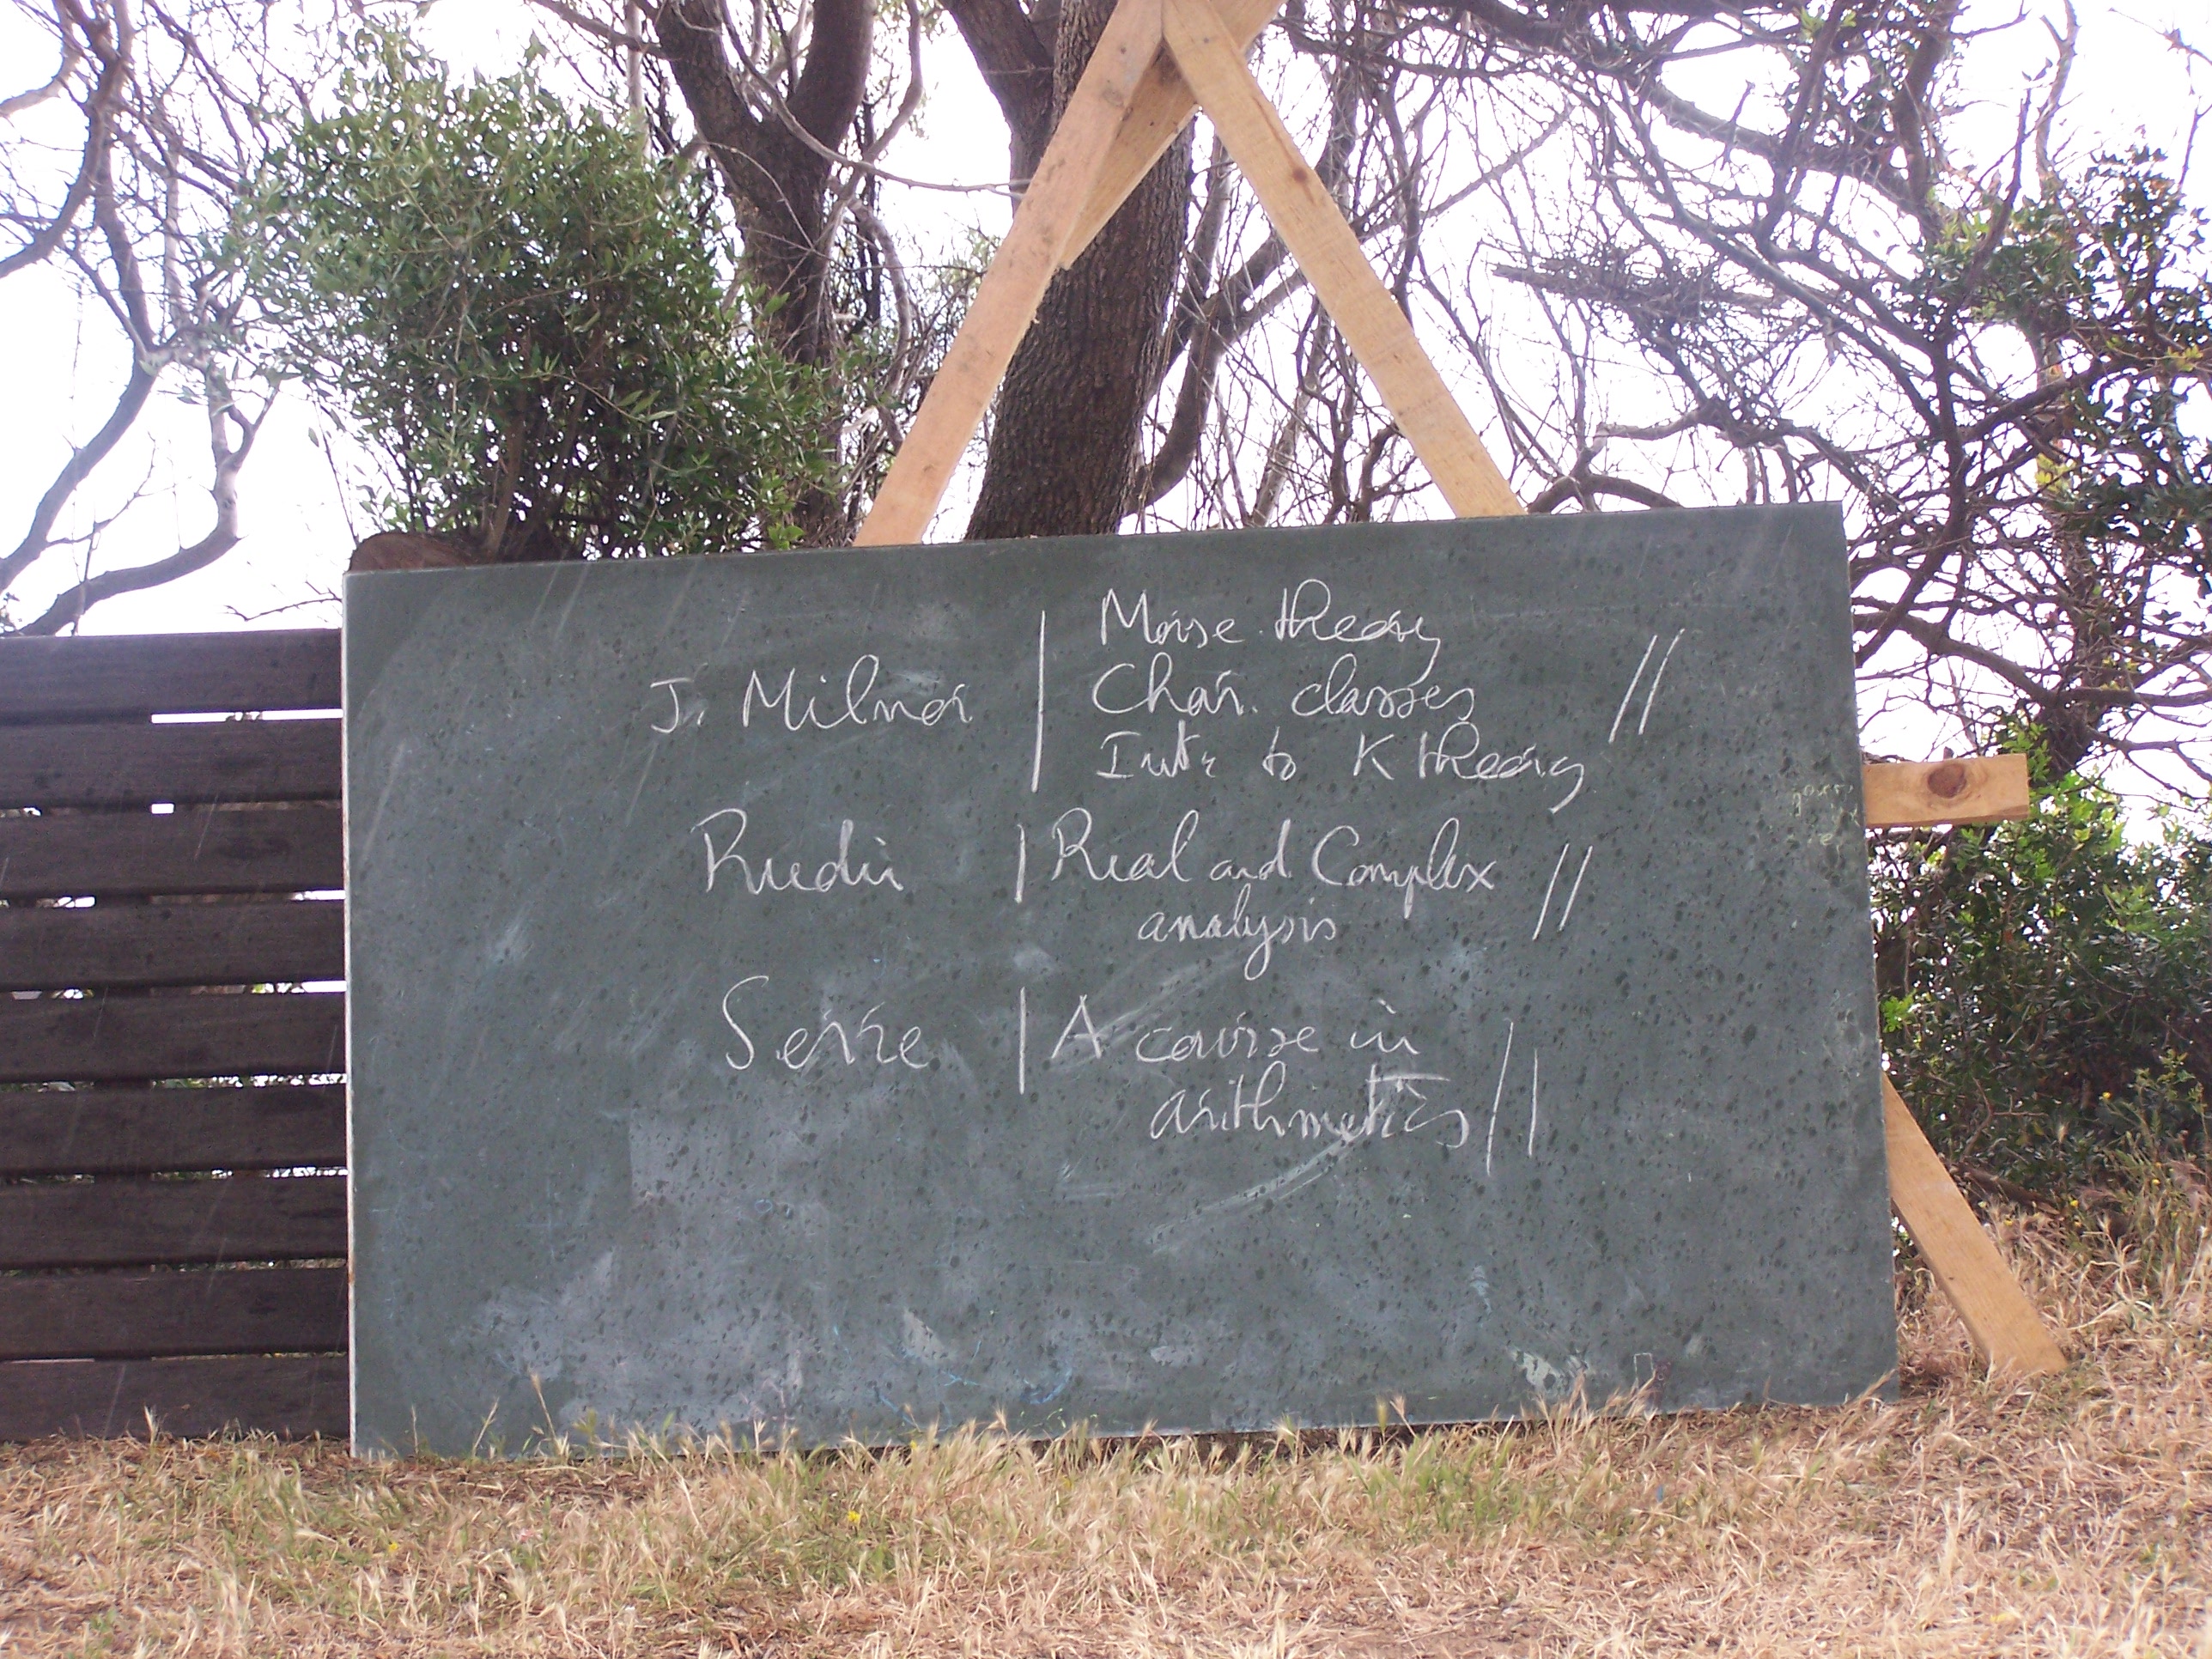 J. Milnor | Morse theory
Char. classes //
Intr to K theory
Rudin | Real and Complex //
analysis
Serre | A course in
arithmetics //